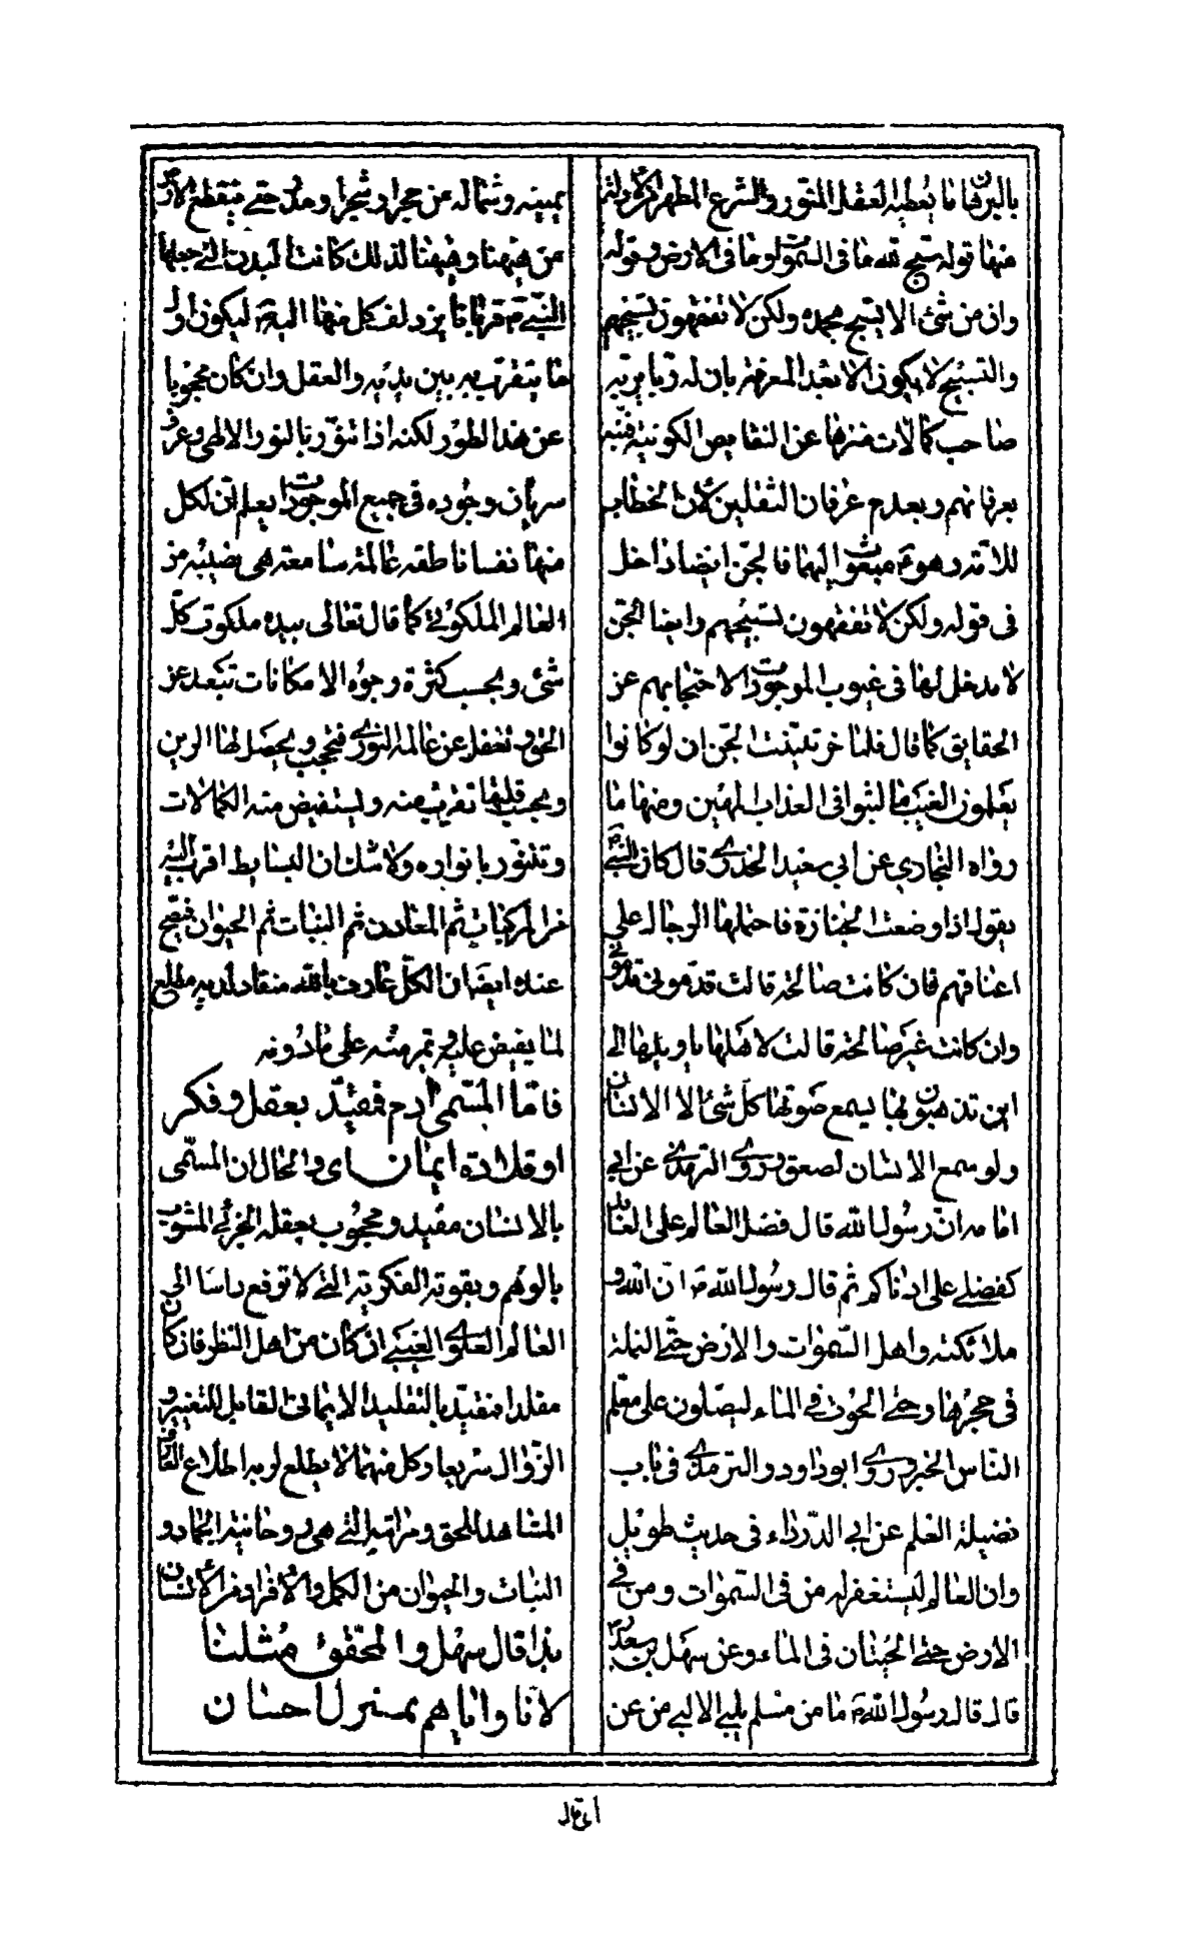 بالبرهان ما يعطيه العقل المنور والشرع المطهر
منها قوله يسبح لله ما فى السموات وما فى الارض وقوله
وان من شئ الا يسبح بحمده ولكن لا تفقهون تسبيحهم
والتسبيح لا يكون الا بعد المعرفة بان له ربا يربه
صاحب كمالات منزها عن النقايص الكونية فنبه
بعرفانهم وبعدم عرفان الثقلين لان الخطاب
للامة وهو ع مبعوث اليهما فالجن ايضا داخل
فى قوله ولكن لا تفقهون تسبيحهم وايضا الجن
لا مدخل لها فى غيوب الموجودات لاحتجابهم عن
الحقايق كما قال فلما خر تبينت الجن ان لو كانوا
يعلمون الغيب ما لبثوا فى العذاب المهين ومنها ما
رواه البخاري عن ابي سعيد الخدري قال كان النبي
يقول اذا وضعت الجنازة فاحتملها الرجال على
اعناقهم فان كانت صالحة قالت قدموني قدموني
وان كانت غير صالحة قالت لاهلها يا ويلها الى
اين تذهبون بها يسمع صوتها كل شئ الا الانسان
ولو سمع الانسان لصعق وروى الترمذي عن ابي
امامة ان رسول الله قال فضل العالم على العابد
كفضلي على ادناكم ثم قال رسول الله ص ان الله و
ملائكته واهل السموات والارض حتى النملة
فى حجرها وحتى الحوت في الماء ليصلون على معلم
الناس الخير وروى ابو داود والترمذي فى باب
فضيلة العلم عن ابي الدرداء فى حديث طويل
وان العالم ليستغفر له من فى السموات ومن في
الارض حتى الحيتان فى الماء وعن سهل بن سعد
قال قال رسول الله ص ما من مسلم يلبي الا لبى من عن
يمينه وشماله من حجر او شجر او مدر حتى ينقطع الارض
من ههنا وههنا لذلك كانت البدن التي جعلها
النبي ص قربانا يزدلف كل منها اليه ليكون اول
ما يتقرب به بين يديه والعقل وان كان محجوبا
عن هذا الطور لكنه اذا تنور بالنور الالهي وعرف
سريان وجوده فى جميع الموجودات يعلم ان لكل
منها نفسا ناطقة عالمة سامعة هى نصيبه من
العالم الملكوتي كما قال تعالى بيده ملكوت كل
شئ وبحسب كثرة وجوه الامكانات تبعد عن
الحق وتغفل عن عالمه النوري فتحجب ويحصل لها الرين
وبحسب قلتها تقرب منه وتستفيض منه الكمالات
وتتنور بانواره ولا شك ان البسايط اقرب اليه
من المركبات ثم المعادن ثم النبات ثم الحيوان فصح
عنده ايضا ان الكل عارف بالله منقاد لديه مطلع
لما يفيض عليه ويمر منه على ما دونه
فاما المسمى ادم فمقيد بعقل وفكر
او قلادة ايمان اى والحال ان المسمى
بالانسان مقيد ومحجوب بعقله الجزئي المشوب
بالوهم وبقوته الفكرية التي لا ترفع راسا الى
العالم العلوي الغيبي ان كان من اهل النظر فان كان
مقلدا فمقيد بالتقليد الايماني القابل للتغيير و
الزوال سريعا وكل منهما لا يطلع لو به اطلاع العارف
المشاهد للحق ومراتبه التي هى روحانية الجماد و
النبات والحيوان من الكمل والافراد من الانسان
بذا قال سهل والمحقق مثلنا
لانا واياهم بمنزل احسان
اى قال